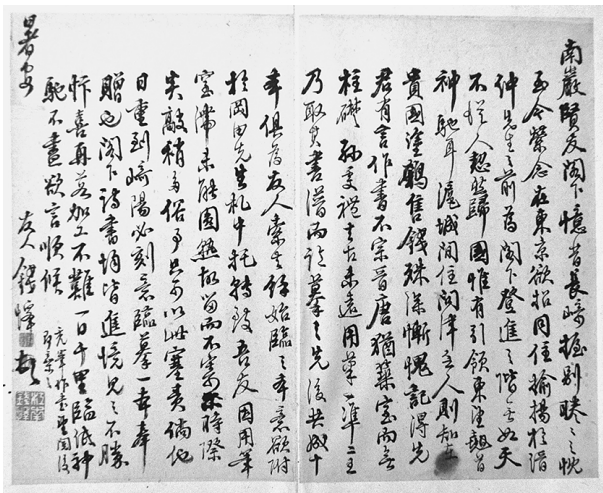 南嚴賢友閣下憶昔長崎握別勝之之忱
至今縈念在東京欲招同住揄揚於諸
仲先生之前為閣下登進之階無如天
不從人愬然歸國惟有引領東望翹首
神馳耳滬城間住間津主人則知在
貴國塗鴉售錢殊深慚愧記得先
君有言作書不宗晉唐猶築室而無
柱礎孫虔禮去古未遠用筆準二王
乃取其書譜而臨摹之先後共成十
本俱為友人索去餘始臨之本意欲附
於岡田先生札中托轉致吾友因用筆
室滯未能圓熟故留而不寄時際
炎敲稍多俗事只可以此塞責倘他
日重到崎陽必刻意臨摹一本奉
贈也閣下詩書均皆進境見之不勝
忭喜再若加工不難一日千里臨紙神
馳不盡欲言順候
暑安
友人錢懌頓